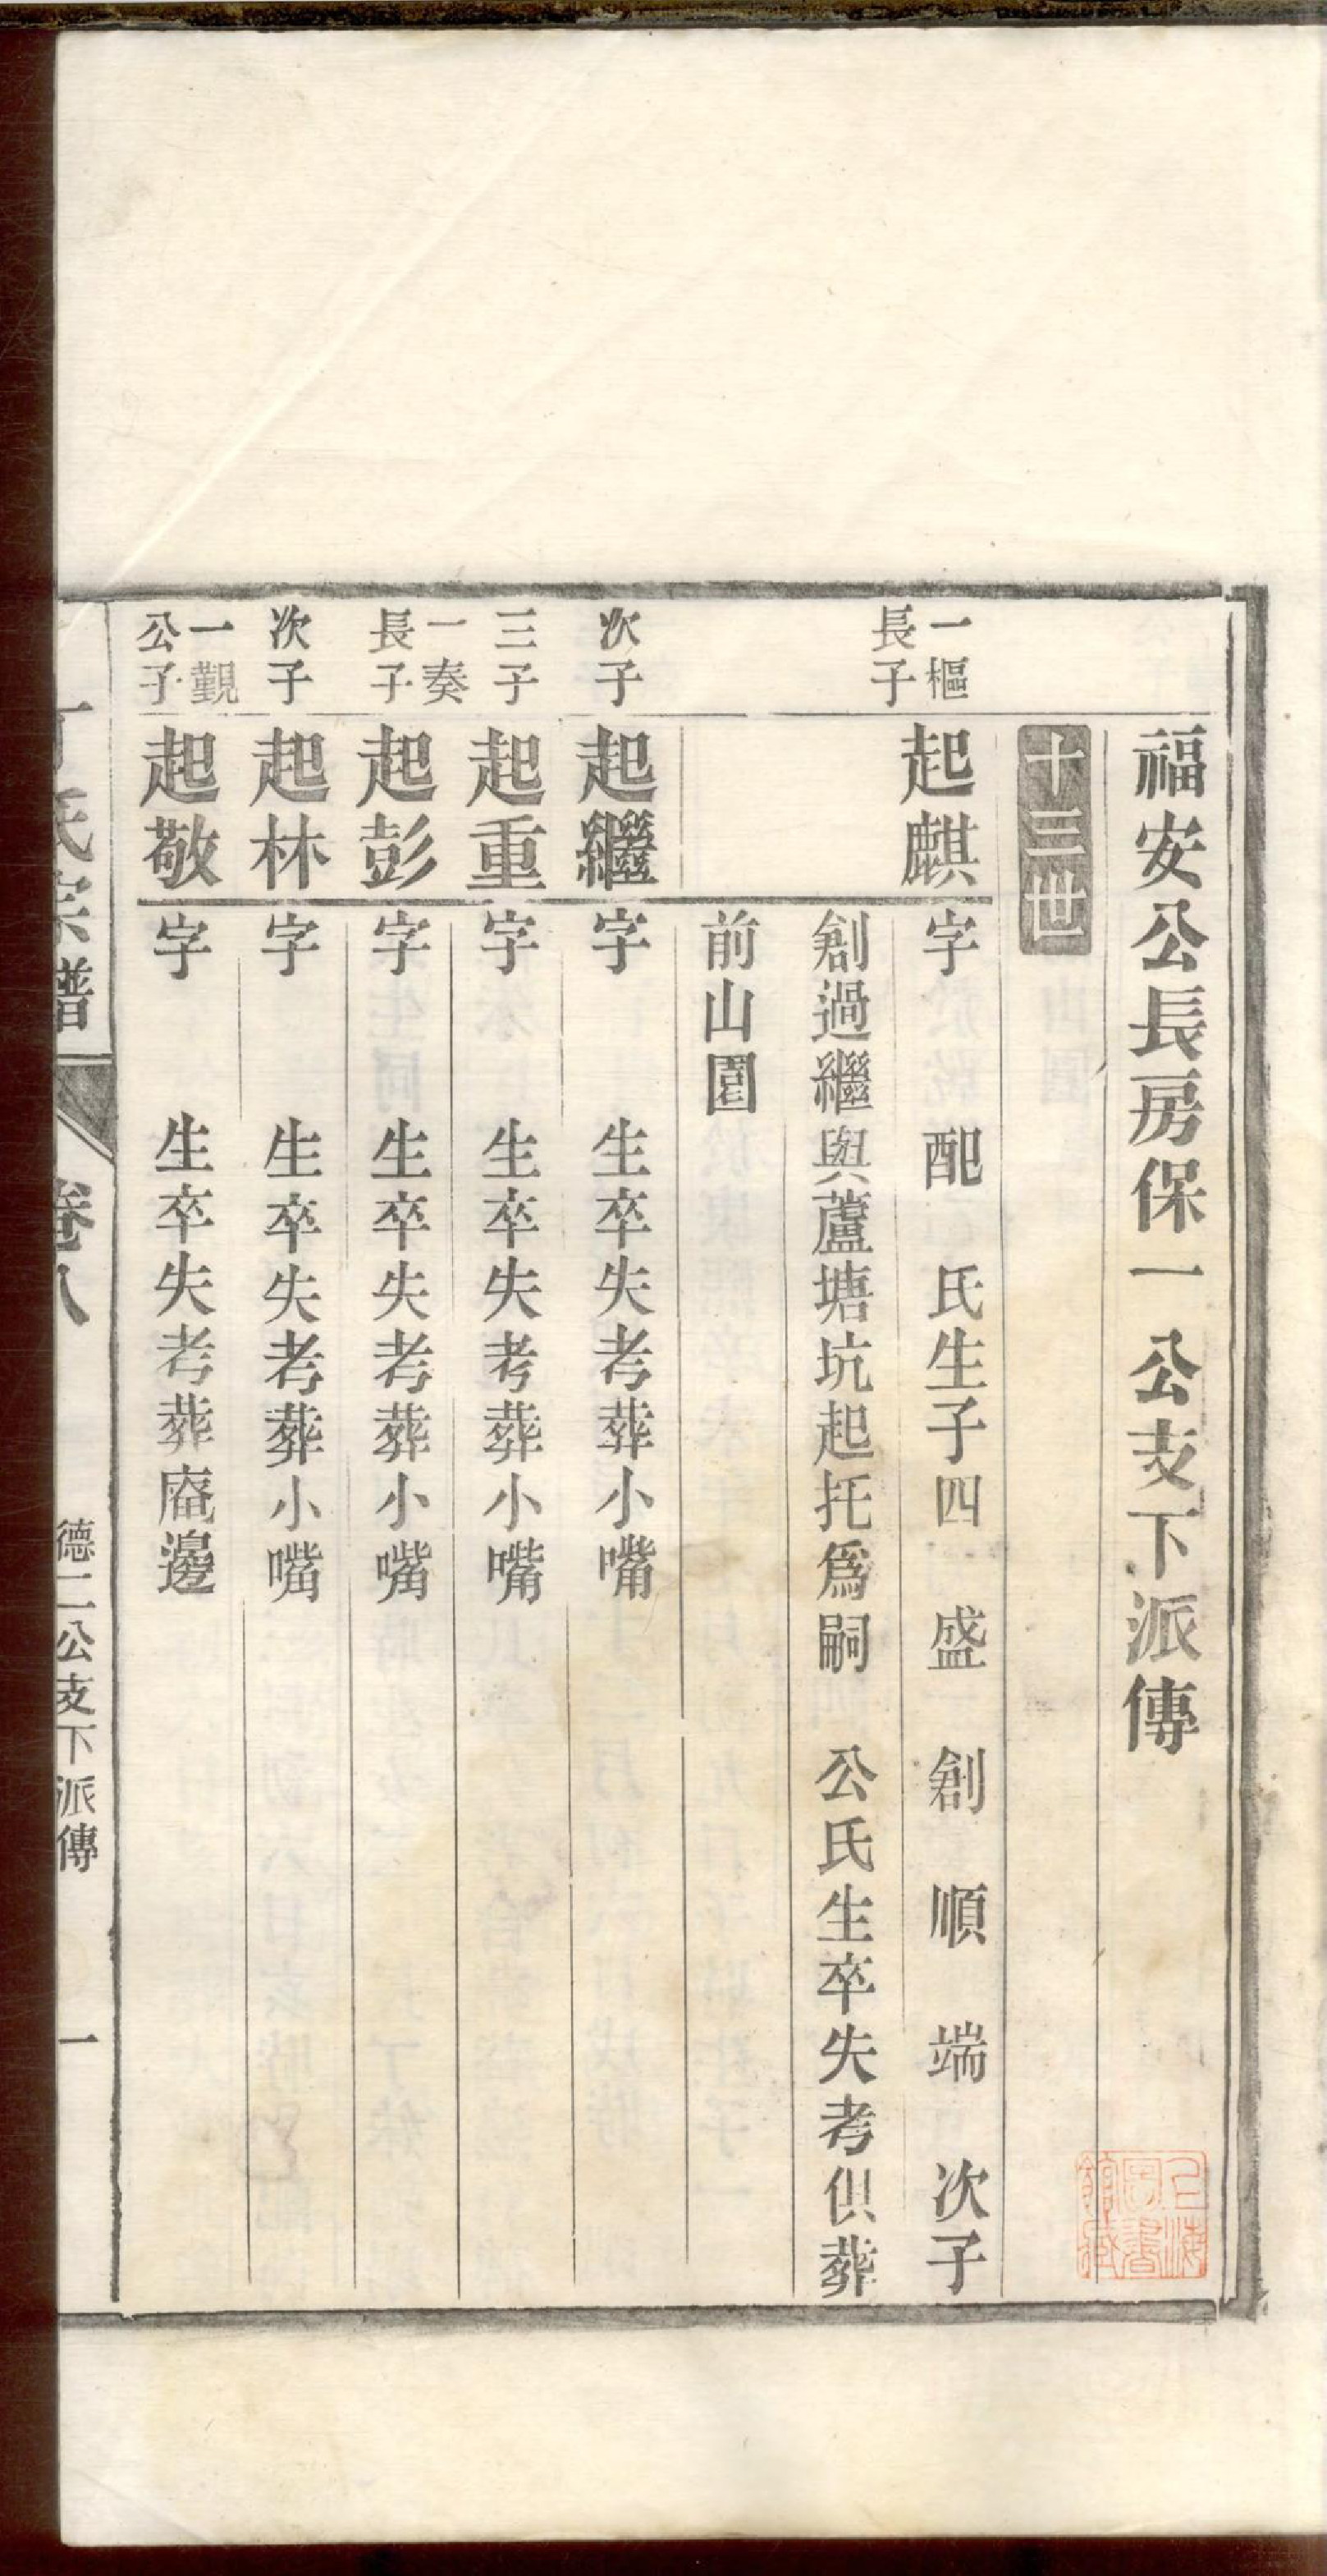 福安公長房保一公支下派傳
十三世
一樞
長子
起麒
字 配 氏生子四 盛 創 順 端 次子
創過繼與蘆塘坑起托爲嗣 公氏生卒失考俱葬
前山園
次子
起繼
字 生卒失考葬小嘴
三子
起重
字 生卒失考葬小嘴
一奏
長子
起彭
字 生卒失考葬小嘴
次子
起林
字 生卒失考葬小嘴
一覲
公子
起敬
字 生卒失考葬庵邊
丁氏宗譜 卷八 德二公支下派傳 一
上海
圖書
館藏